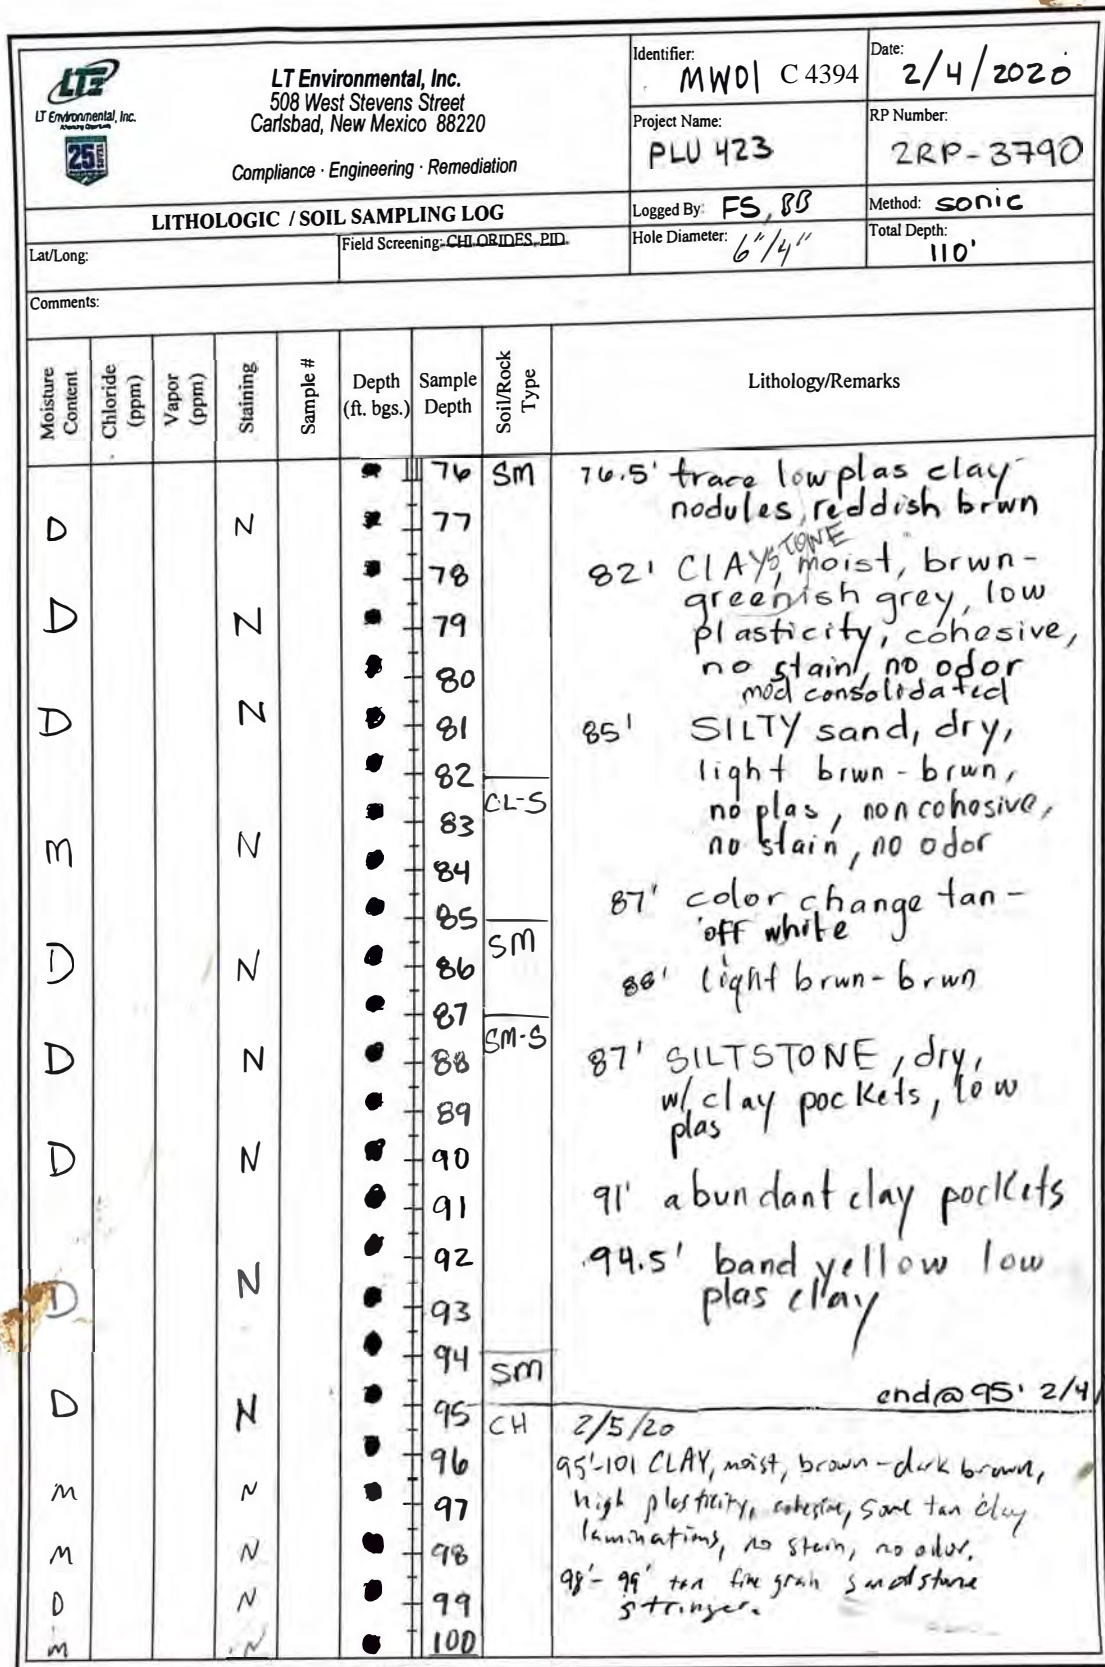 LTE
LT Environmental, Inc.
25
LT Environmental, Inc.
508 West Stevens Street
Carlsbad, New Mexico 88220
Compliance · Engineering · Remediation
Identifier: MW01 C 4394
Date: 2/4/2020
Project Name: PLU 423
RP Number: 2RP-3790
LITHOLOGIC / SOIL SAMPLING LOG
Logged By: FS, BB
Method: sonic
Lat/Long:
Field Screening: CHLORIDES, PID.
Hole Diameter: 6"/4"
Total Depth: 110'
Comments:
Moisture Content
Chloride (ppm)
Vapor (ppm)
Staining
Sample #
Depth (ft. bgs.)
Sample Depth
Soil/Rock Type
Lithology/Remarks
76 SM 76.5' trace low plas clay
nodules, reddish brwn
D N 77
78
82' CLAYSTONE, moist, brwn-
greenish grey, low
D N 79
plasticity, cohesive,
80
no stain, no odor
mod consolidated
D N 81
85' SILTY sand, dry,
82
light brwn - brwn,
CL-S
83
no plas, non cohosive,
M N 84
no stain, no odor
85
87' color change tan -
off white
SM
D N 86
88' light brwn - brwn
87
SM-S
D N 88
87' SILTSTONE, dry,
w/ clay pockets, low
89
plas
D N 90
91
91' abundant clay pockets
92
94.5' band yellow low
D N 93
plas clay
94
SM
end @ 95' 2/4
D N 95
CH 2/5/20
96
95'-101 CLAY, moist, brown - dark brown,
M N 97
high plasticity, cohesive, some tan clay
laminations, no stain, no odor.
M N 98
98'- 99' tan fine grain sandstone
D N 99
stringer.
M N 100